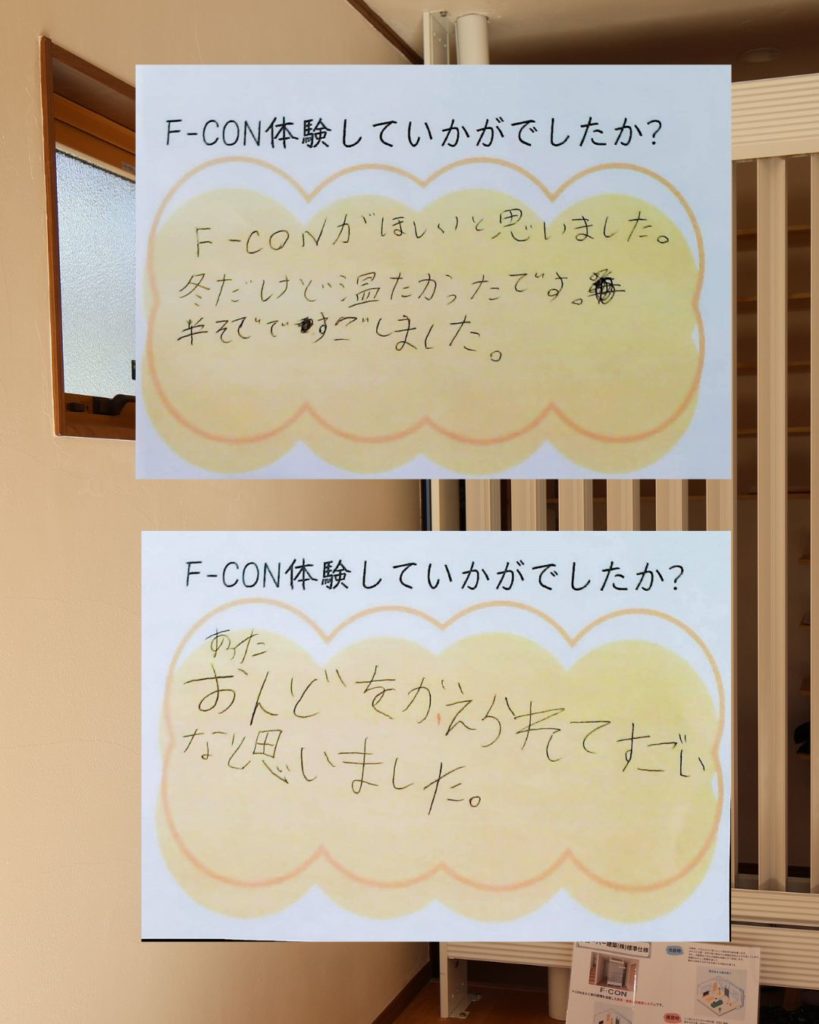 F-CON体験していかがでしたか?
F-CONがほしいと思いました。
冬だけど温たかったです。
半そでですごしました。
F-CON体験していかがでしたか?
あった
おんどをかえられてすごい
なと思いました。
建築(株)標準仕様
F-CON